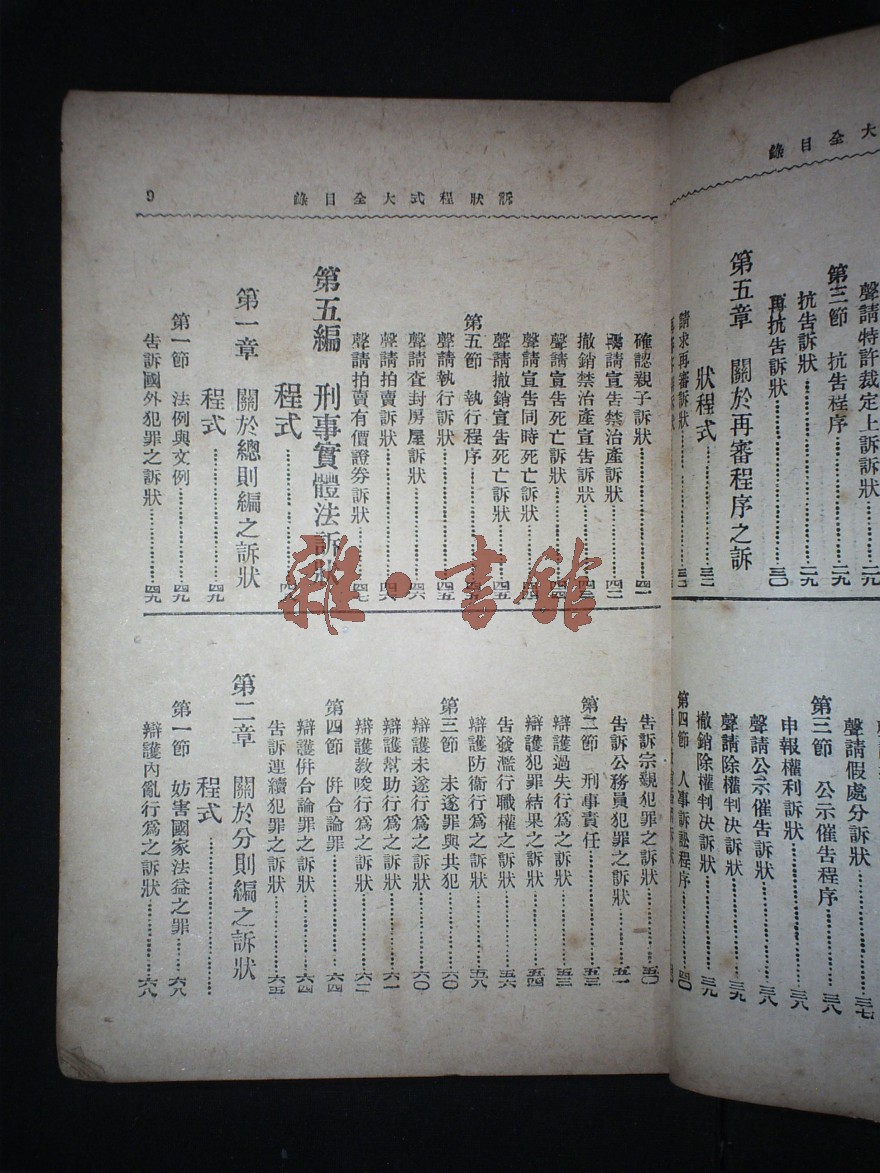 大全目錄
聲請特許裁定上訴訴狀……二九
第三節 抗告程序……二九
抗告訴狀……二九
再抗告訴狀……三〇
第五章 關於再審程序之訴
狀程式……三二
請求再審訴狀……三二
聲請假處分訴狀……三七
第三節 公示催告程序……三八
申報權利訴狀……三八
聲請公示催告訴狀……三八
聲請除權判決訴狀……三九
撤銷除權判決訴狀……三九
第四節 人事訴訟程序……四〇
訴狀程式大全目錄
9
確認親子訴狀……四一
聲請宣告禁治產訴狀……四二
撤銷禁治產宣告訴狀
聲請宣告死亡訴狀
聲請宣告同時死亡訴狀
聲請撤銷宣告死亡訴狀……四五
第五節 執行程序……四五
聲請執行訴狀……四五
聲請查封房屋訴狀……四六
聲請拍賣訴狀……四六
聲請拍賣有價證券訴狀……四七
第五編 刑事實體法訴狀
程式……四九
第一章 關於總則編之訴狀
程式……四九
第一節 法例與文例……四九
告訴國外犯罪之訴狀……四九
告訴宗親犯罪之訴狀……五〇
告訴公務員犯罪之訴狀……五一
第二節 刑事責任……五三
辯護過失行為之訴狀……五三
辯護犯罪結果之訴狀……五四
告發濫行職權之訴狀……五六
辯護防衛行為之訴狀……五八
第三節 未遂罪與共犯……六〇
辯護未遂行為之訴狀……六〇
辯護幫助行為之訴狀……六一
辯護教唆行為之訴狀……六二
第四節 併合論罪……六四
辯護併合論罪之訴狀……六四
告訴連續犯罪之訴狀……六五
第二章 關於分則編之訴狀
程式……
第一節 妨害國家法益之罪……六八
辯護內亂行為之訴狀……六八
雜·書館